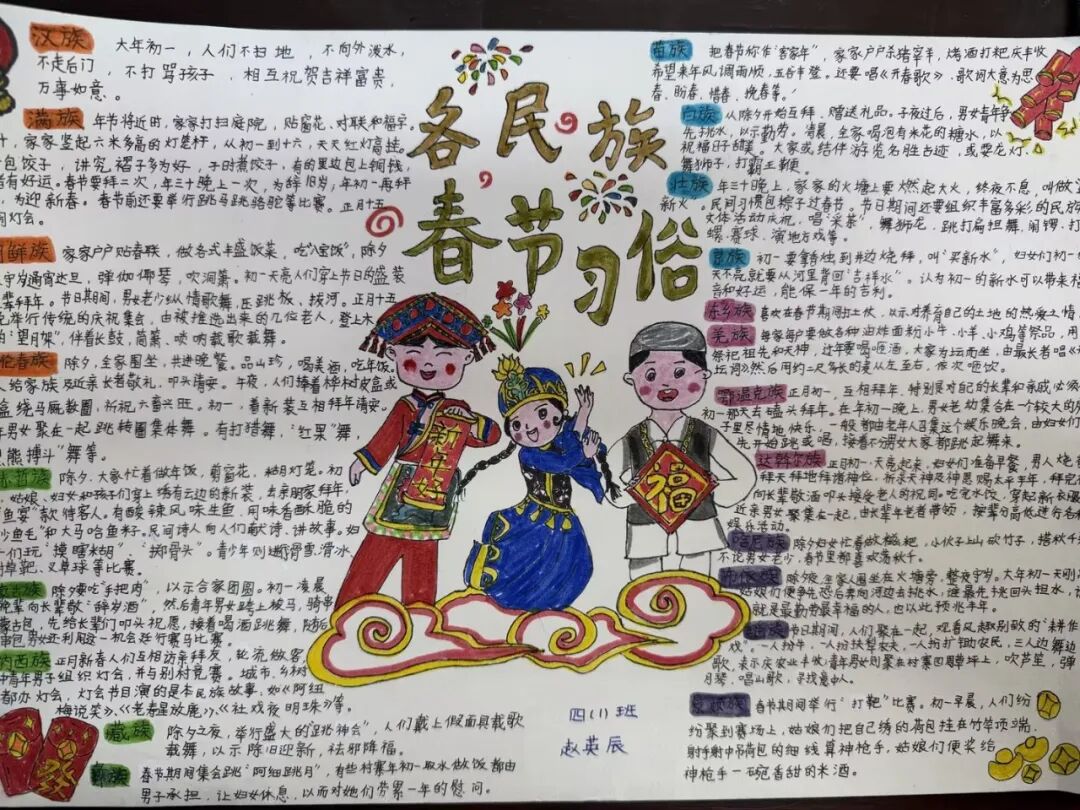 各民族
春节习俗
汉族 大年初一，人们不扫地，不向外泼水，
不走后门，不打骂孩子，相互祝贺吉祥富贵，
万事如意。
满族 年节将近时，家家打扫庭院，贴窗花、对联和福字。
家家竖起六米多高的灯笼杆，从初一到十六，天天红灯高挂。
包饺子，讲究褶子多为好，子时煮饺子，有的里边包上铜钱，
者有好运。春节要拜二次，年三十晚上一次，为辞旧岁，年初一再拜
，为迎新春。春节前还要举行跳马跳骆驼等比赛。正月十五
灯会。
鲜族 家家户户贴春联，做各式丰盛饭菜，吃"八宝饭"，除夕
守岁通宵达旦，弹伽倻琴，吹洞箫。初一天亮人们穿上节日的盛装
辈拜年。节日期间，男女老少纵情歌舞，压跳板、拔河。正月十五
举行传统的庆祝集会，由被推选出来的几位老人，登上木
"望月架"，伴着长鼓、筒箫、唢呐载歌载舞。
春族 除夕，全家围坐，共进晚餐。品山珍，喝美酒，吃年饭。
人给家族及近亲长者敬礼，叩头请安。午夜，人们捧着桦树皮盒或
盒绕马厩数圈，祈祝六畜兴旺。初一，着新装互相拜年请安。
男女聚在一起跳转圈集体舞。有打猎舞，"红果"舞，
熊搏斗"舞等。
哲族 除夕，大家忙着做年饭，剪窗花，糊灯笼。初
姑娘、妇女和孩子们穿上绣有云边的新装，去亲朋家拜年，
鱼宴"款待客人。有酸辣风味生鱼，
鱼毛"和大马哈鱼籽。民间诗人向人们献诗、讲故事。妇
们玩"摸瞎糊"、"掷骨头"。青少年则进行滑雪、滑冰，
射草靶、叉草球等比赛。
除夕要吃"手把肉"，以示合家团圆。初一凌晨
晚辈向长辈敬"辞岁酒"，然后青年男女跨上被马，骑串
蒙古包，先给长辈们叩头祝愿，接着喝酒跳舞，随后
串包男女还利用这一机会进行赛马比赛。
纳西族 正月新春人们互相访亲拜友，轮流做客
中青年男子组织灯会，并与别村竞赛。城市、乡村
都办灯会，灯会节目演的是本民族故事，如《阿纽
梅说笑》、《老寿星放鹿》、《社戏夜明珠》等。
藏族 除夕之夜，举行盛大的"跳神会"，人们戴上假面具载歌
载舞，以示除旧迎新，祛邪降福。
彝族 春节期间集会跳"阿细跳月"，有些村寨年初一取水做饭都由
男子承担，让妇女休息，以示对她们劳累一年的慰问。
新年好
福
四(1)班
赵英辰
苗族 把春节称作"客家年"，家家户户杀猪宰羊，烤酒打粑庆丰收
希望来年风调雨顺，五谷丰登。还要唱《开春歌》，歌词大意为思
春、盼春、惜春、挽春等。
白族 从除夕开始互拜、赠送礼品。子夜过后，男女青年争
先挑水，以示勤劳。清晨，全家喝泡有米花的糖水，以
祝福日子甜美。大家或结伴游览名胜古迹，或耍龙灯、
舞狮子，打霸王鞭。
壮族 年三十晚上，家家的火塘上要燃起大火，终夜不息，叫做"
新火"。民间习惯包粽子过春节。节日期间还要组织丰富多彩的民族
文体活动庆祝，唱"采茶"，舞狮龙，跳打扁担舞，闹锣，打
螺，赛球、演地方戏等。
初一要拿烛到井边烧拜，叫"买新水"，妇女们初一
天不亮就要从河里背回"吉祥水"，认为初一的新水可以带来福
音和好运，能保一年的吉利。
东乡族 喜欢在春节期间打土仗，以示对养育自己的土地的热爱之情。
羌族 每家每户要做各种油炸面粉小牛、小羊、小鸡等祭品，用
祭祀祖先和天神，过年要喝咂酒，大家为坛而坐，由最长者唱《
坛词》然后用约二尺多长的麦从左至右，依次咂饮。
鄂温克族 正月初一，互相拜年，特别是对自己的长辈和亲戚，必须
初一那天去磕头拜年。在年初一晚上，男女老幼集合在一个较大的房
子里尽情地快乐，一般都由老年人召集这个娱乐晚会，由妇女们
先开始跳或唱，接着不分男女大家都跳起舞来。
达斡尔族 正月初一，天亮起来，妇女们准备早餐，男人烧
拜天拜地拜诸神位，祈求天神及神恩赐太平丰年，拜完
向长辈敬酒叩头接受老人的祝词。吃完水饺，穿起新长
近亲男女聚集在一起，由长辈年老者带领，按辈分高低进行各
娱乐活动。
哈尼族 除夕妇女忙着做糍粑，小伙子上山砍竹子，搭秋千
不论男女老少，春节里都喜欢荡秋千。
布依族 除夕夜，全家人围坐在火塘旁，整夜守岁。大年初一天刚
姑娘们便争先恐后奔向河边去挑水，谁最先挑回头担水，谁
就是最勤劳最幸福的人，也以此预兆丰年。
节日期间，人们聚在一起，观看风趣别致的"耕作
戏"。一人扮牛，一人扮扶犁农夫，一人扮扩锄农民，三人边舞边
歌，表示庆农业丰收。青年男女则聚在村寨四周草坪上，吹芦笙，弹
月琴，唱山歌，寻找意中人。
春节期间举行"打靶"比赛。初一早晨，人们纷
纷聚到赛场上，姑娘们把自己绣的荷包挂在竹竿顶端，
射手射中吊荷包的细线算神枪手，姑娘们便奖给
神枪手一碗香甜的米酒。